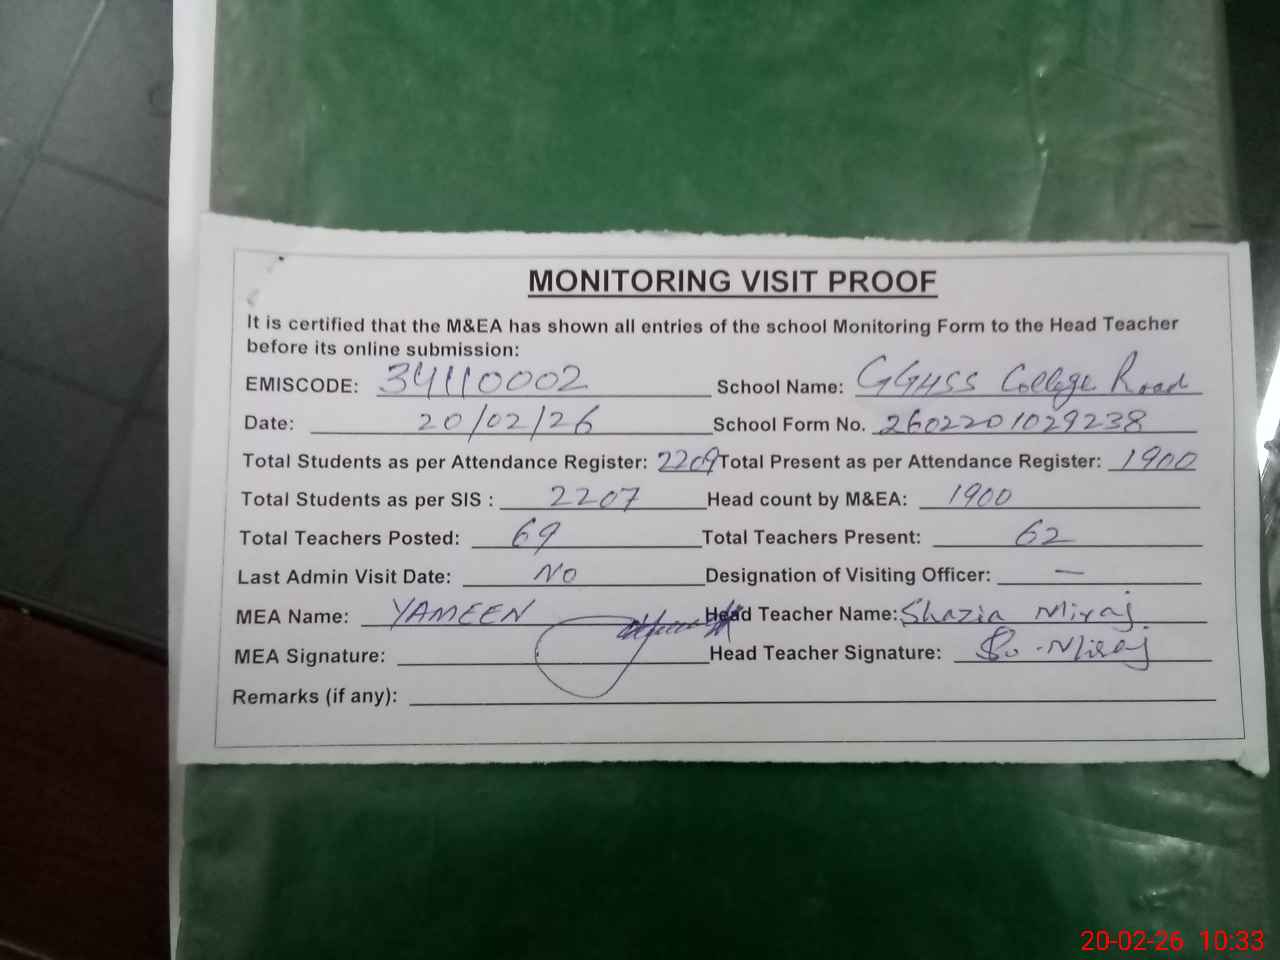 MONITORING VISIT PROOF
It is certified that the M&EA has shown all entries of the school Monitoring Form to the Head Teacher
before its online submission:
EMISCODE: 34110002 School Name: GGHSS College Road
Date: 20/02/26 School Form No. 2602201029238
Total Students as per Attendance Register: 2209 Total Present as per Attendance Register: 1900
Total Students as per SIS : 2207 Head count by M&EA: 1900
Total Teachers Posted: 69 Total Teachers Present: 62
Last Admin Visit Date: NO Designation of Visiting Officer: —
MEA Name: YAMEEN Head Teacher Name: Shazia Miraj
MEA Signature: Head Teacher Signature: Miraj
Remarks (if any):
20-02-26 10:33